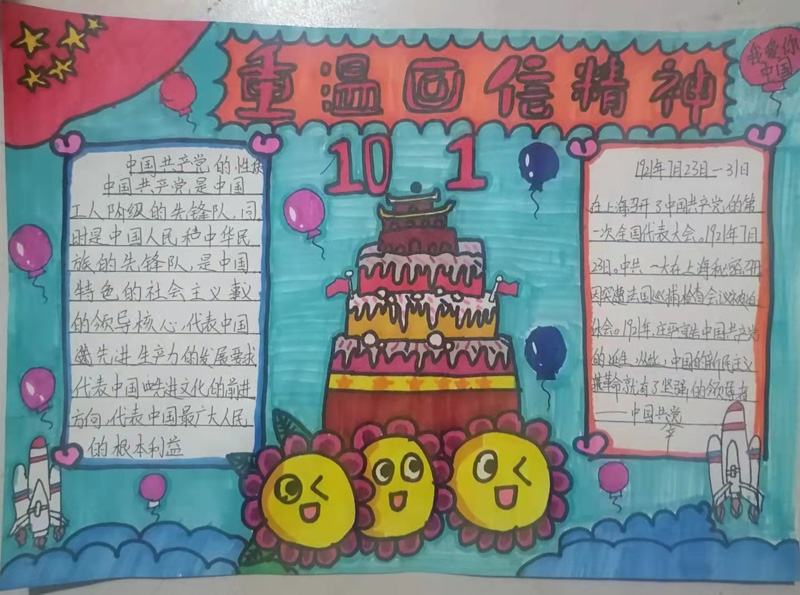 重温回信精神
我爱你
中国
10 1
中国共产党的性质
中国共产党是中国
工人阶级的先锋队,同
时是中国人民和中华民
族的先锋队,是中国
特色的社会主义事业
的领导核心,代表中国
先进生产力的发展要求
代表中国先进文化的前进
方向,代表中国最广大人民
的根本利益
1921年7月23日—31日
在上海召开了中国共产党的第
一次全国代表大会。1921年7月
23日。中共一大在上海秘密召开
因突遭法国巡捕检查会议被迫
休会。
的诞生,从此,中国的新民主义
革命就有了坚强的领导者
——中国共党